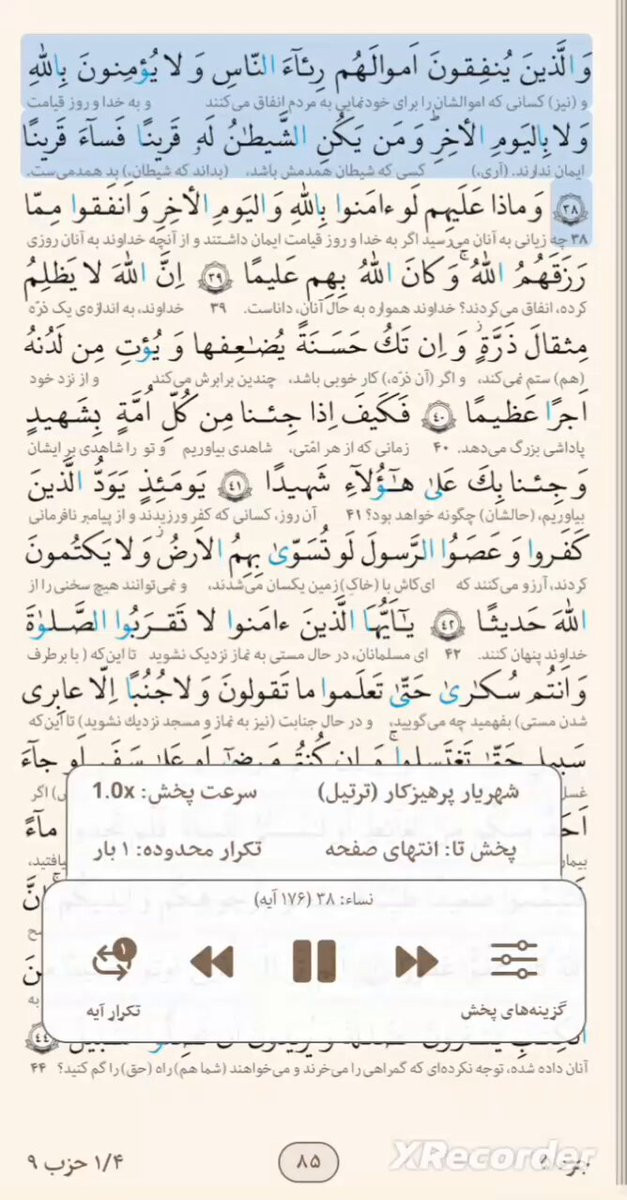 وَالَّذینَ یُنفِقونَ اَموالَهُم رِئآءَ النّاسِ وَ لا یُؤمِنونَ بِاللهِ
و (نیز) کسانی که اموالشان را برای خودنمایی به مردم انفاق می‌کنند و به خدا و روز قیامت
وَلا بِالیَومِ الأخِرِۗ وَ مَن یَکُنِ الشَّیطٰنُ لَهٗ قَرینًا فَسآءَ قَرینًا
ایمان ندارند. (آری،) کسی که شیطان همدمش باشد، (بداند که شیطان،) بد همدمی‌ست.
﴿۳۸﴾ وَ ماذا عَلَیهِم لَو ءامَنوا بِاللهِ وَ الیَومِ الأخِرِ وَ اَنفَقوا مِمّا
۳۸ چه زیانی به آنان می‌رسید اگر به خدا و روز قیامت ایمان داشتند و از آنچه خداوند به آنان روزی
رَزَقَهُمُ اللهُۚ وَ کانَ اللهُ بِهِم عَلیمًا ﴿۳۹﴾ اِنَّ اللهَ لا یَظلِمُ
کرده، انفاق می‌کردند؟ خداوند همواره به حال آنان، داناست. ۳۹ خداوند، به اندازه‌ی یک ذرّه
مِثقالَ ذَرَّةٍۖ وَ اِن تَکُ حَسَنَةً یُضٰعِفها وَ یُؤتِ مِن لَدُنهُ
(هم) ستم نمی‌کند، و اگر (آن ذرّه،) کار خوبی باشد، چندین برابرش می‌کند و از نزد خود
اَجرًا عَظیمًا ﴿۴۰﴾ فَکَیفَ اِذا جِئنا مِن کُلِّ اُمَّةٍ بِشَهیدٍ
پاداشی بزرگ می‌دهد. ۴۰ زمانی که از هر امّتی، شاهدی بیاوریم و تو را شاهدی بر ایشان
وَ جِئنا بِكَ عَلیٰ هٰٓؤُلآءِ شَهیدًا ﴿۴۱﴾ یَومَئِذٍ یَوَدُّ الَّذینَ
بیاوریم، (حالشان) چگونه خواهد بود؟ ۴۱ آن روز، کسانی که کفر ورزیدند و از پیامبر نافرمانی
کَفَروا وَ عَصَوُا الرَّسولَ لَو تُسَوّیٰ بِهِمُ الاَرضُۖ وَ لا یَکتُمونَ
کردند، آرزو می‌کنند که ای‌کاش با (خاکِ) زمین یکسان می‌شدند، و نمی‌توانند هیچ سخنی را از
اللهَ حَدیثًا ﴿۴۲﴾ یٰٓاَیُّهَا الَّذینَ ءامَنوا لا تَقرَبُوا الصَّلوٰةَ
خداوند پنهان کنند. ۴۲ ای مسلمانان، در حال مستی به نماز نزدیک نشوید تا این‌که (با برطرف
وَ اَنتُم سُکٰریٰ حَتّیٰ تَعلَموا ما تَقولونَ وَ لا جُنُبًا اِلّا عابِری
شدن مستی) بفهمید چه می‌گویید، و در حال جنابت (نیز به نماز و مسجد نزدیك نشوید) تا این‌که
سَبیلٍ حَتّیٰ تَغتَسِلواۚ وَ اِن کُنتُم مَرضیٰٓ اَو عَلیٰ سَفَرٍ اَو جآءَ
اگر
مآءً
شهریار پرهیزکار (ترتیل) سرعت پخش: 1.0x
پخش تا: انتهای صفحه تکرار محدوده: ۱ بار
نساء: ۳۸ (۱۷۶ آیه)
۱
گزینه‌های پخش تکرار آیه
﴿۴۴﴾
آنان داده شده، توجه نکرده‌ای که گمراهی را می‌خرند و می‌خواهند (شما هم) راه (حق) را گم کنید؟ ۴۴
۸۵ ۱/۴ حزب ۹
XRecorder